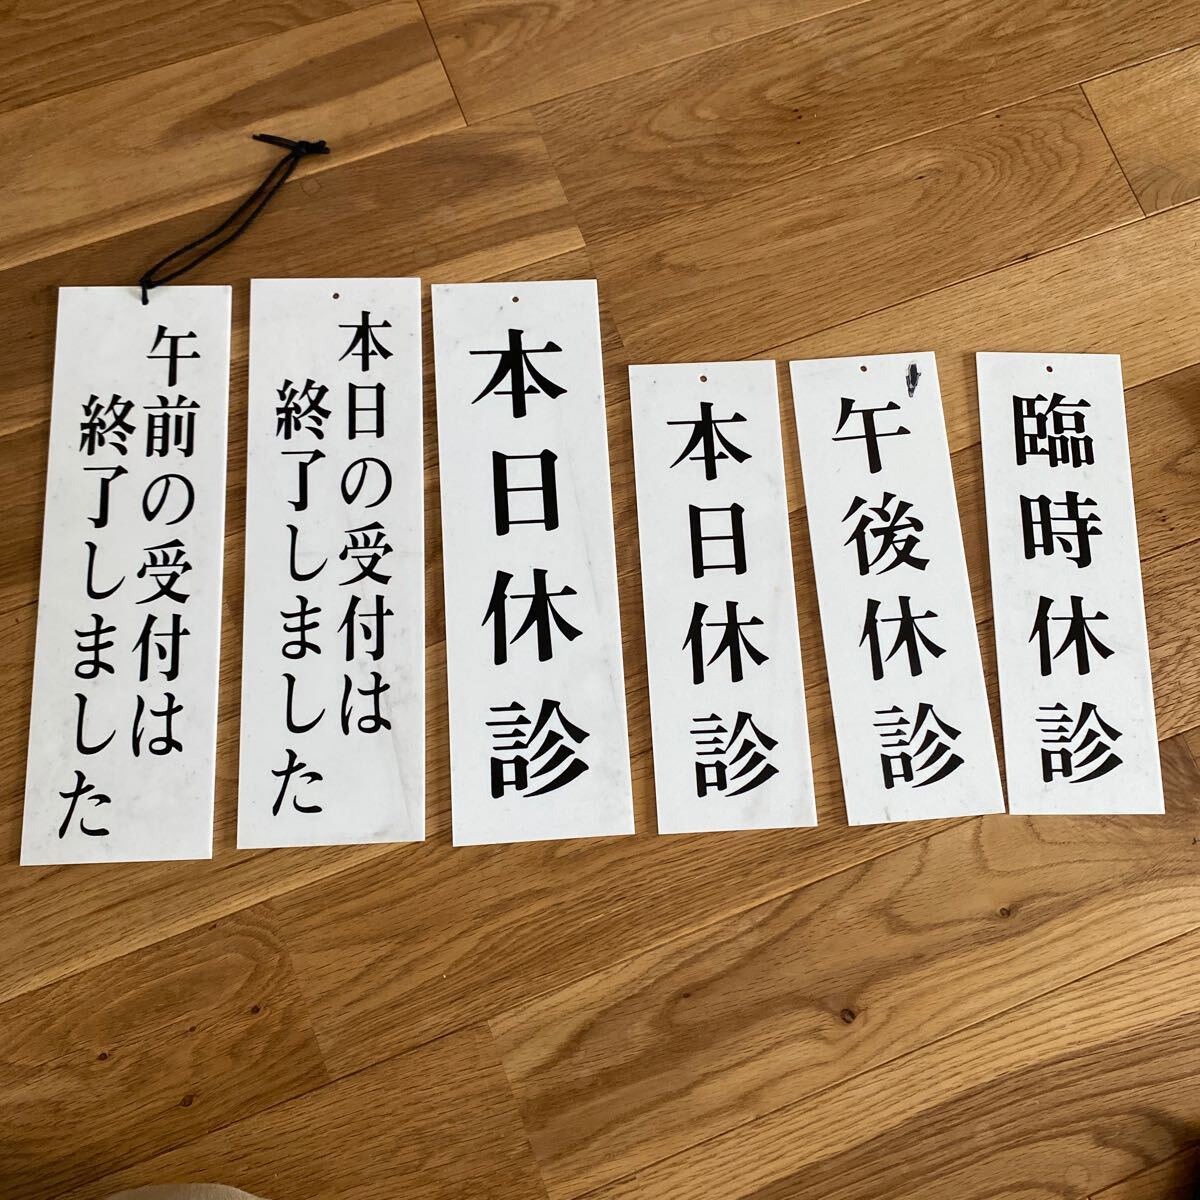 午前の受付は
終了しました
本日の受付は
終了しました
本日休診
本日休診
午後休診
臨時休診